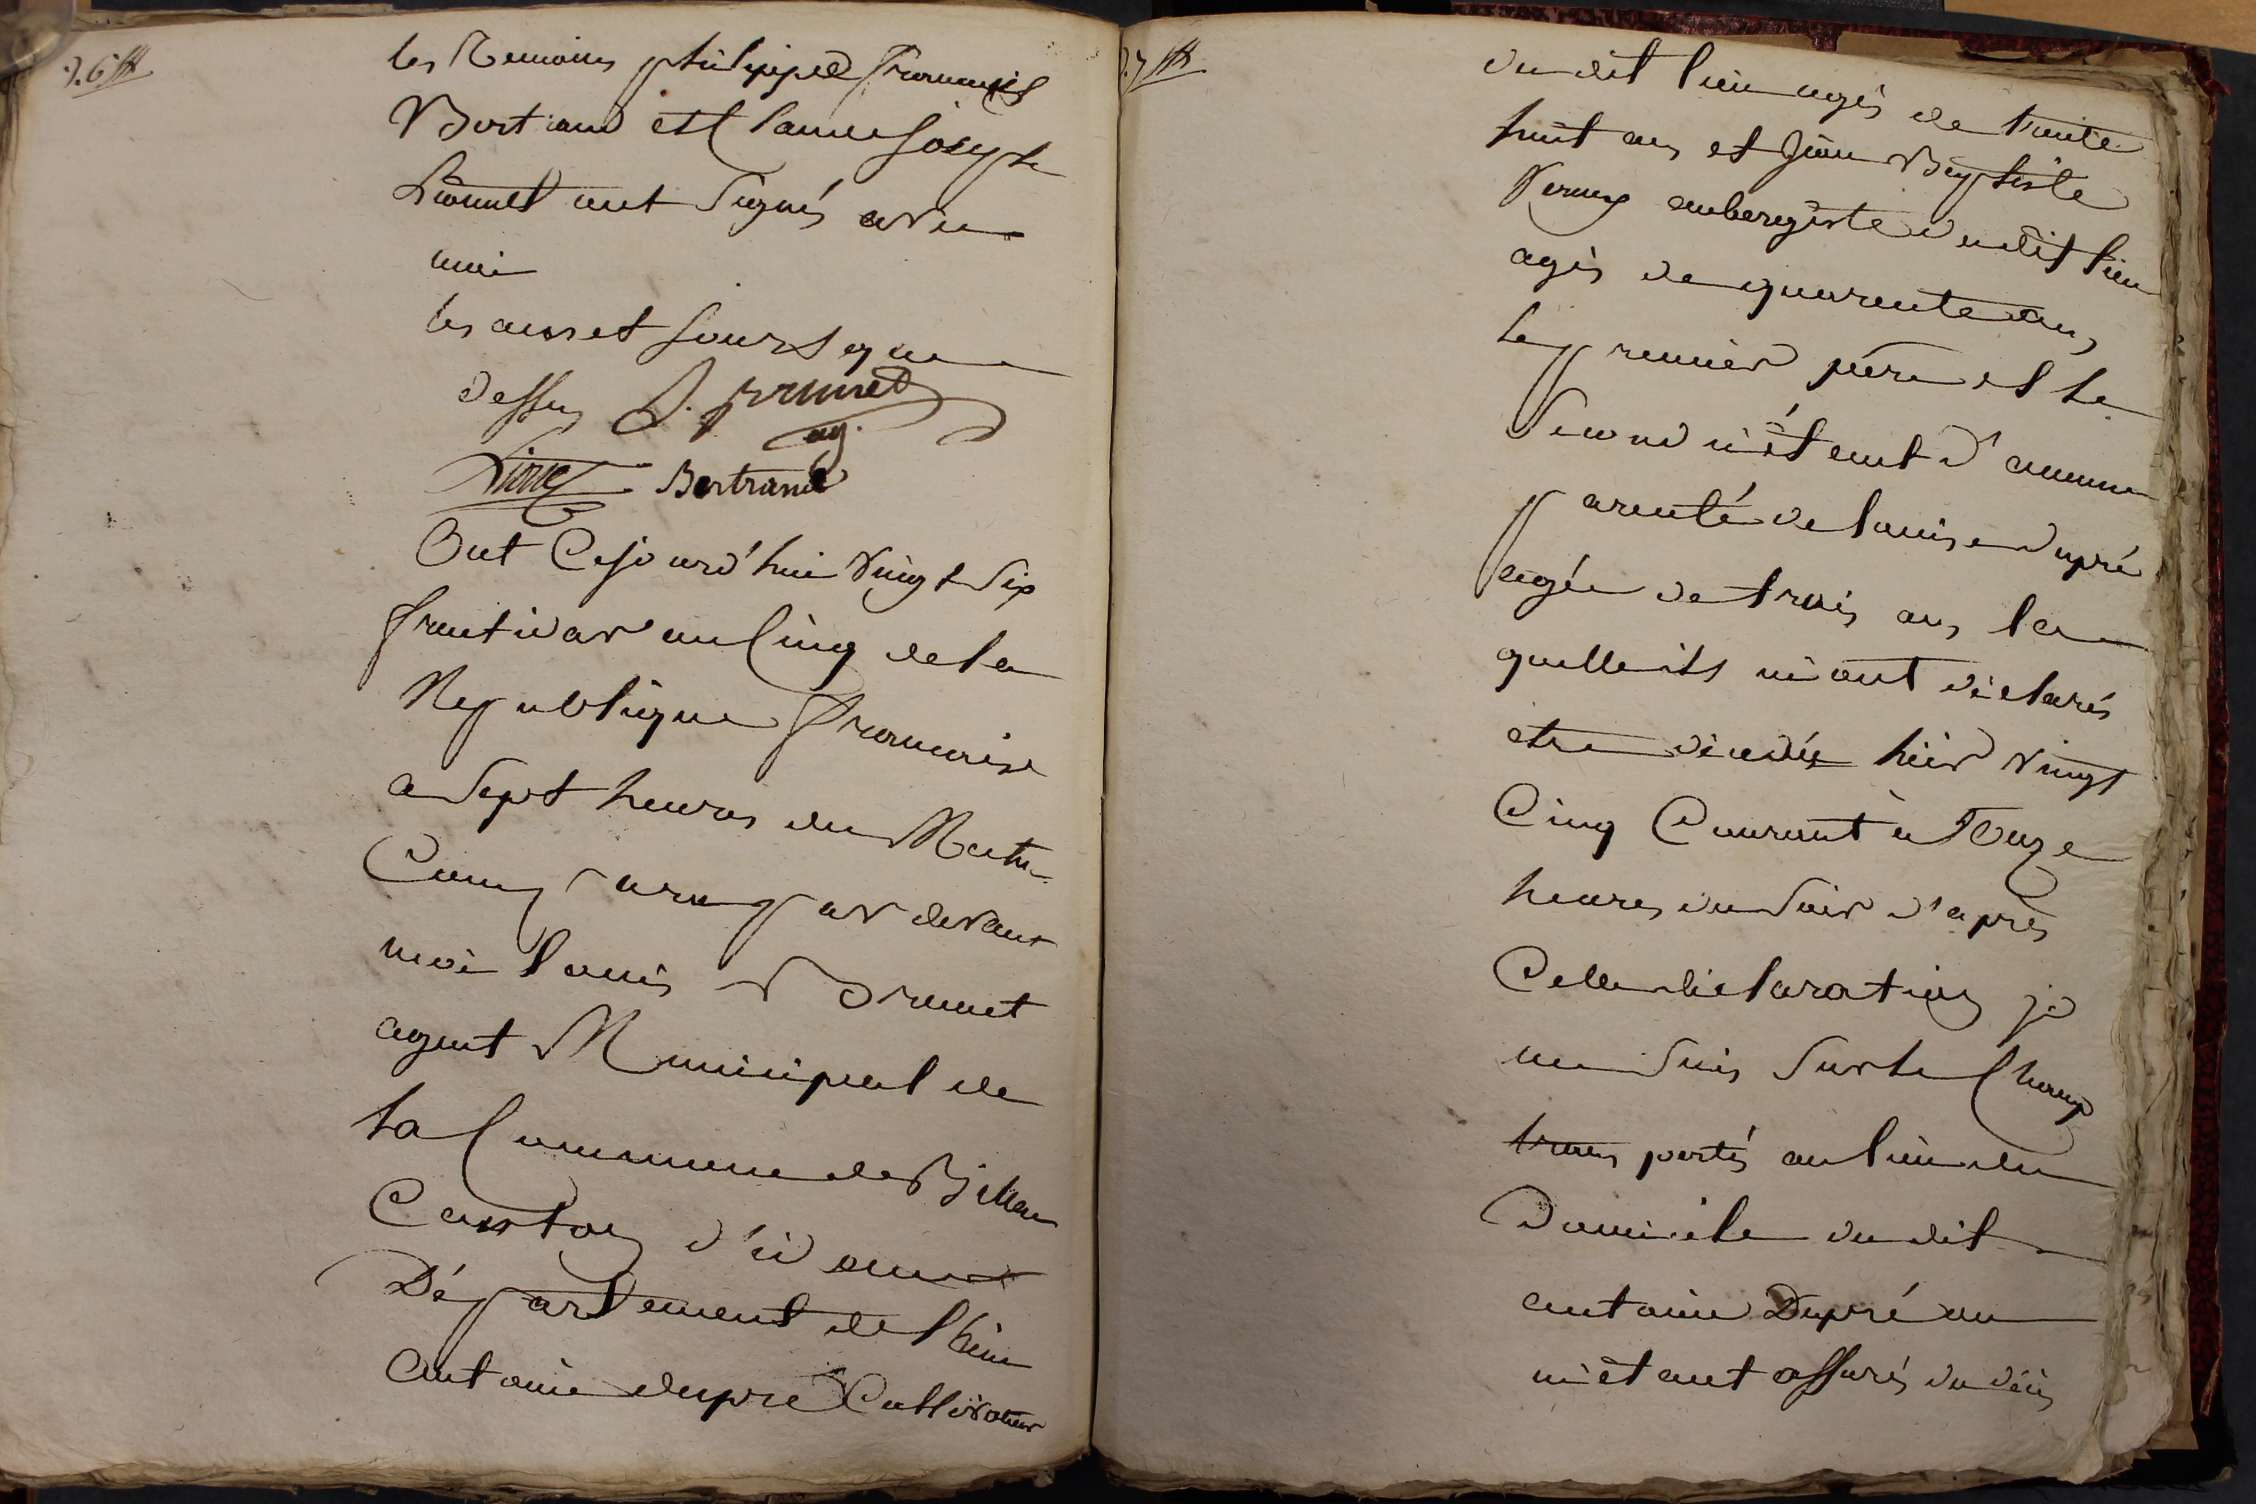 les Temoins philippe François
Bertrand et Laure Joseph
Lionnet ont Signés avec
moi
les ans et Jours que
dessus L. Brunet
ag.
Lionnet Bertrand
Cejourd'hui vingt Six
fructidor an Cinq de la
Republique française
a Sept heures du Matin
Comparu par devant
moi louis Brunet
agent Municipal de
la Commune de
Canton
Département de l'ain
antoine dupré Cultivateur
du dit lieu agés de trente
huit ans et Jean Baptiste
aubergiste du dit lieu
agés de quarente ans
le premier père et le
Second n'étant d'aucune
parenté de louise dupré
agée de trois ans la
quelle ils m'ont déclarés
etre décédée hier vingt
Cinq Courant à Onze
heures du Soir d'après
Cette déclaration je
me Suis Sur le Champ
transportés au lieu du
Domicile du dit
antoine Dupré ou
m'étant assurés du décés